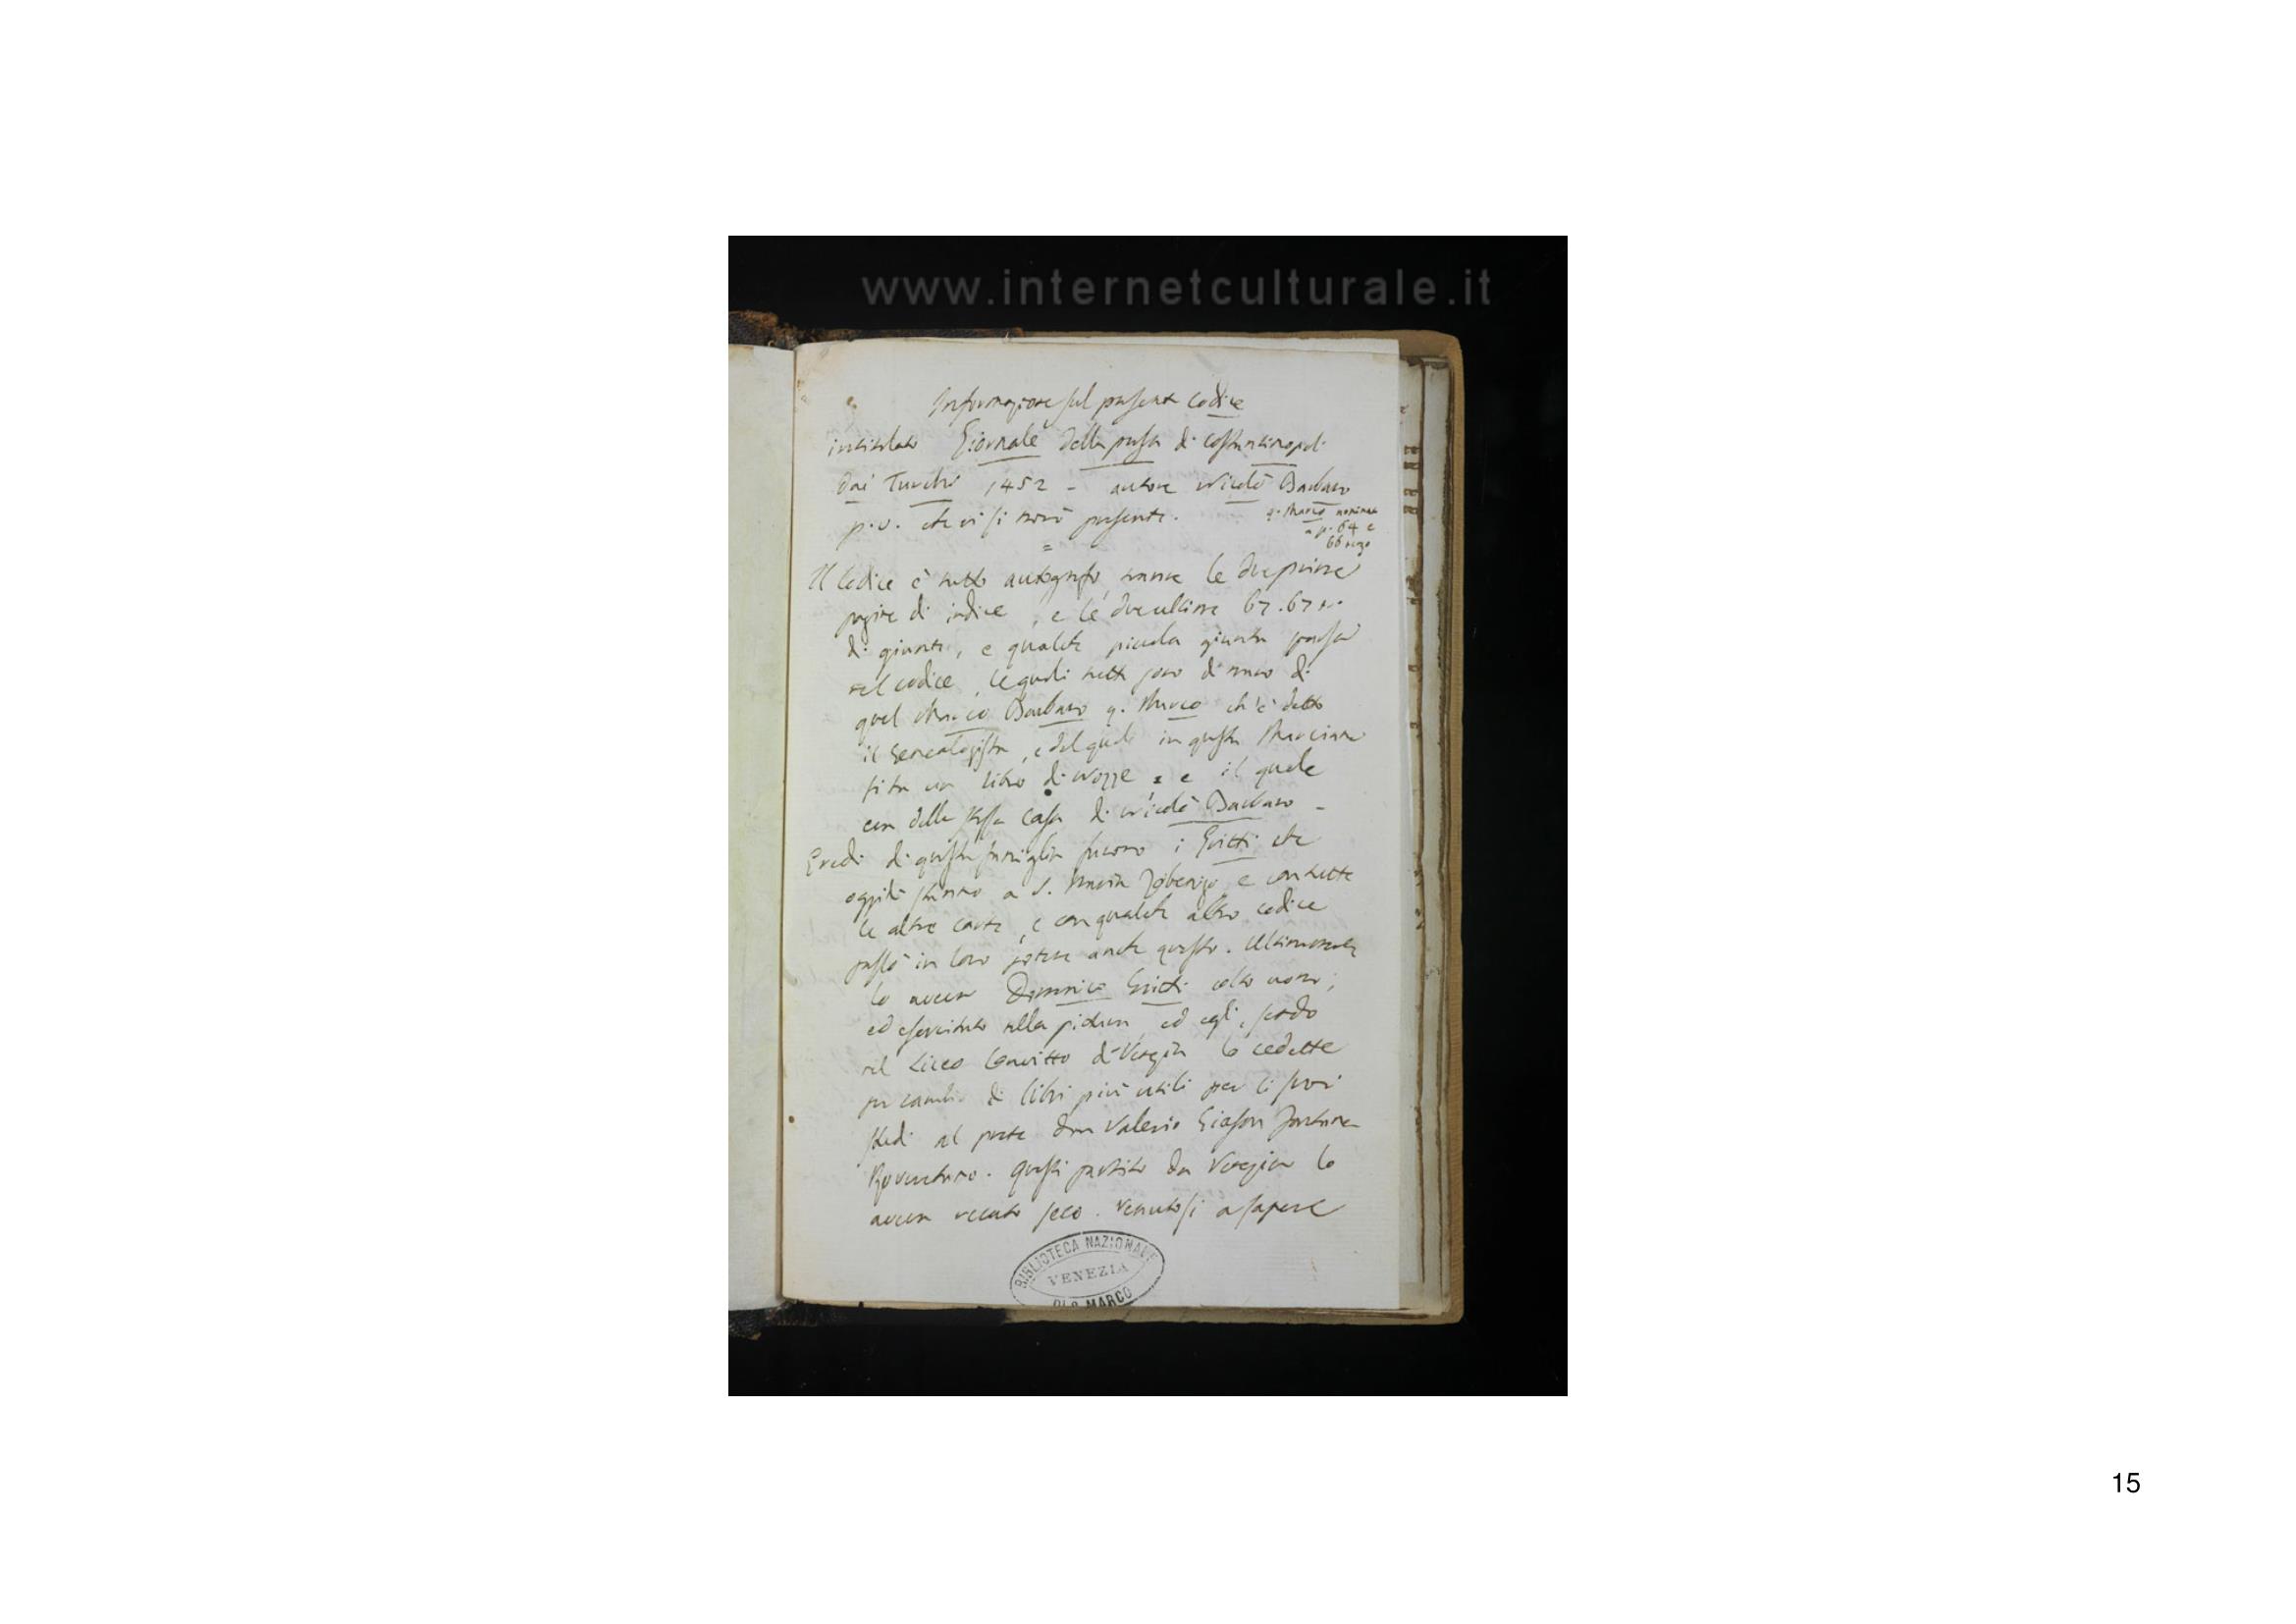 www.internetculturale.it
Informazione sul presente codice
intitolato Giornale della presa di Costantinopoli
dai Turchi 1452 - autore Nicolò Barbaro
p. v. che vi si trovò presente.
q. Marco nominato
a p. 64 e
66 tergo
=
Il Codice è tutto autografo, tranne le due prime
pagine di indice, e le due ultime 67. 67 t.
di giunte, e qualche piccola giunta sparsa
nel codice, le quali tutte sono di mano di
quel Marco Barbaro q. Marco ch'è detto
il Genealogista, e del quale in questa Marciana
si ha un libro di Nozze e il quale
era della stessa casa di Nicolò Barbaro -
Eredi di questa famiglia furono i Gritti che
oggidì stanno a S. Maria Zobenigo, e con tutte
le altre carte, e con qualche altro codice
passò in loro potere anche questo. Ultimamente
lo aveva Domenico Gritti colto uomo,
ed esercitato nella pittura, ed egli, sendo
nel Liceo Convitto di Venezia lo cedette
per cambio di libri più utili per li suoi
studi al prete don Valerio Giason Fontana
. Questi partito da Venezia lo
aveva recato seco. Venutosi a sapere
BIBLIOTECA NAZIONALE
VENEZIA
DI S. MARCO
15